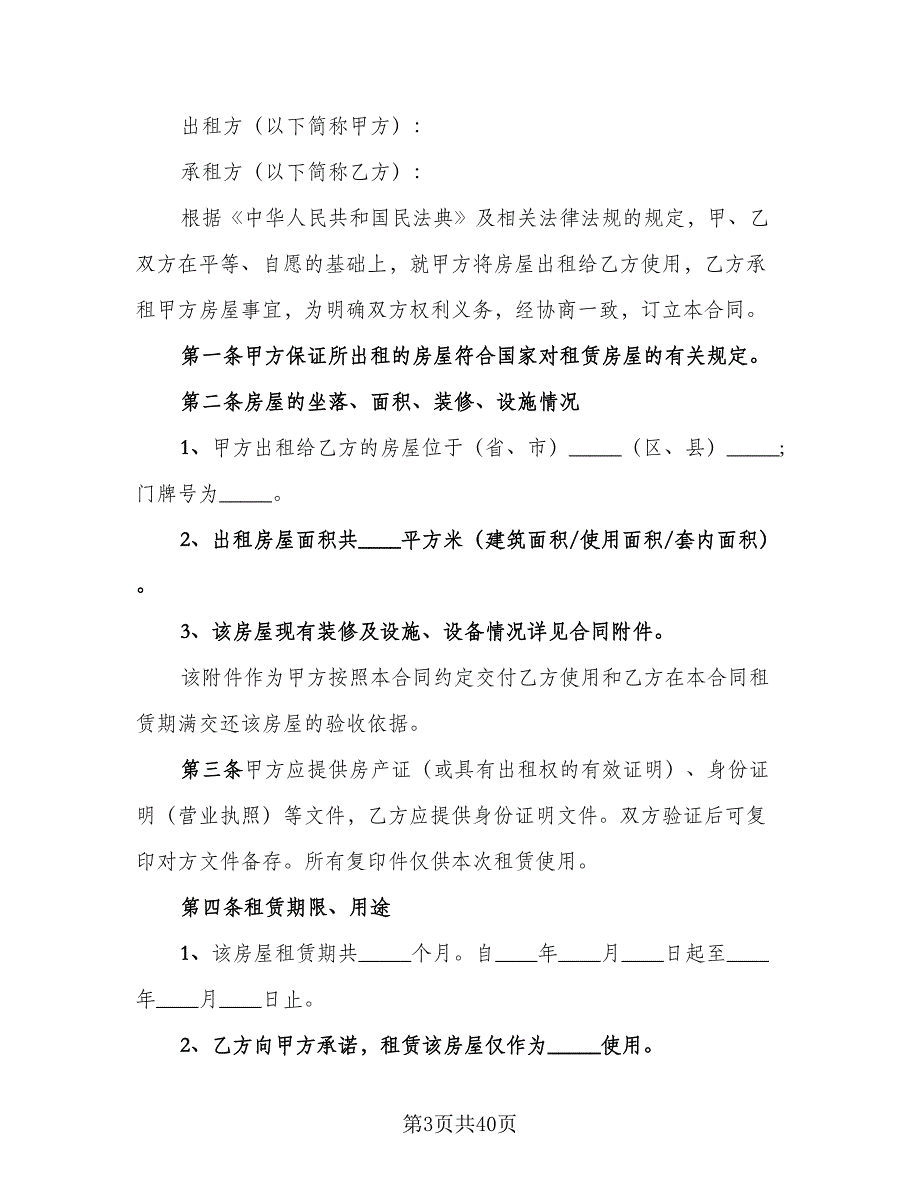 出租方（以下简称甲方）：
承租方（以下简称乙方）：
根据《中华人民共和国民法典》及相关法律法规的规定，甲、乙
双方在平等、自愿的基础上，就甲方将房屋出租给乙方使用，乙方承
租甲方房屋事宜，为明确双方权利义务，经协商一致，订立本合同。
第一条甲方保证所出租的房屋符合国家对租赁房屋的有关规定。
第二条房屋的坐落、面积、装修、设施情况
1、甲方出租给乙方的房屋位于（省、市）_____（区、县）_____;
门牌号为_____。
2、出租房屋面积共____平方米（建筑面积/使用面积/套内面积）
。
3、该房屋现有装修及设施、设备情况详见合同附件。
该附件作为甲方按照本合同约定交付乙方使用和乙方在本合同租
赁期满交还该房屋的验收依据。
第三条甲方应提供房产证（或具有出租权的有效证明）、身份证
明（营业执照）等文件，乙方应提供身份证明文件。双方验证后可复
印对方文件备存。所有复印件仅供本次租赁使用。
第四条租赁期限、用途
1、该房屋租赁期共_____个月。自____年____月____日起至____
年____月____日止。
2、乙方向甲方承诺，租赁该房屋仅作为_____使用。
第3页共40页